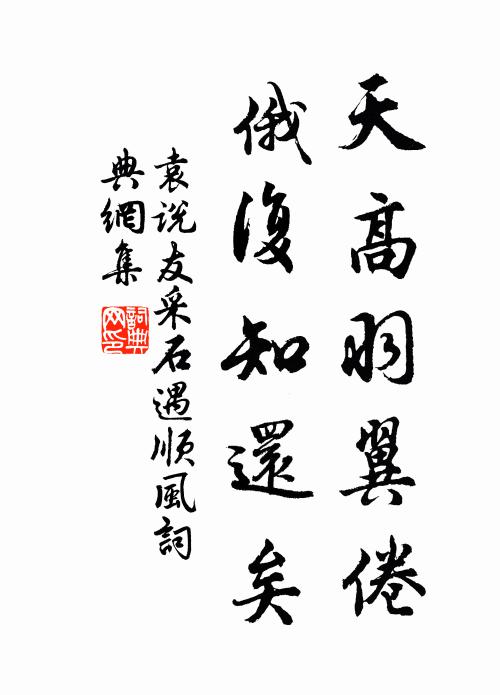 天高羽翼倦
俄復知還矣
袁说友采石遇順風詞
典網集
詞典
网印